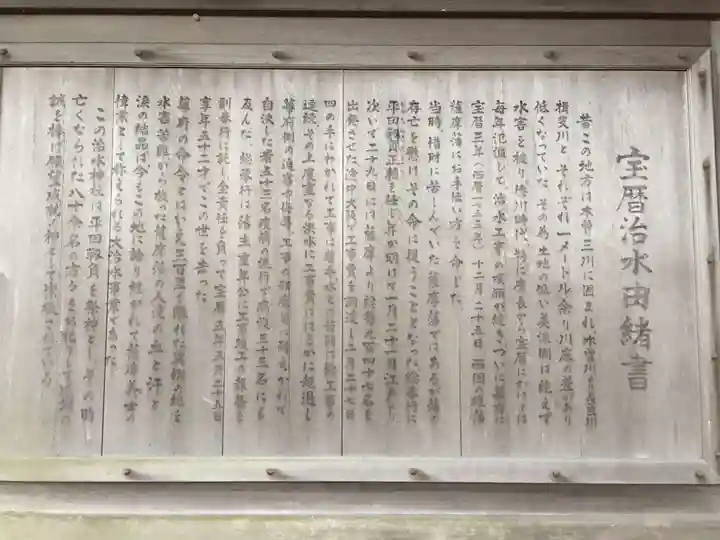 宝暦治水由緒書
昔この地方は木曽三川に囲まれ木曽川と長良川
揖斐川とそれぞれ一メートル余り川底の差があり
低くなっていたその為土地の低い美濃側は絶えず
水害を被り徳川時代、特に慶長から宝暦にかけては
毎年氾濫して治水工事の嘆願が続きついに幕府は
宝暦三年(西暦一七五三年)十二月二十五日西国の雄藩
薩摩藩にお手伝い方を命じた
当時、借財に苦しんでいた薩摩藩ではあるが藩の
存亡を懸けその命に従うこととなった総奉行に
平田靱負正輔を任じ年が明けて一月二十一日江戸より
次いで二十九日には薩摩より総勢九百四十七名を
出発させた途中大阪で工事費を調達し二月二十七日
四の手にわかれて工事に着手
連続その上度重なる洪水に工事費ははるかに超過し
幕府側の
自決した者五十三名疫病の流行で病没三十三名にも
及んだ、総奉行は藩主重年公に工事竣工の報告を
副奉行に託し全責任を負って宝暦五年五月二十五日
享年五十二才でこの世を去った
幕府の命令とはいえ三百里も離れた異郷の地を
水害苦難から救った薩摩藩の人達の血と汗と
涙の結晶は今もこの地に語り継がれて薩摩義士の
偉業として称えられる大治水事業であった
この治水神社は平田靱負を祭神としその時
亡くなられた八十余名の方々を
誠を捧げ願望成就の神として